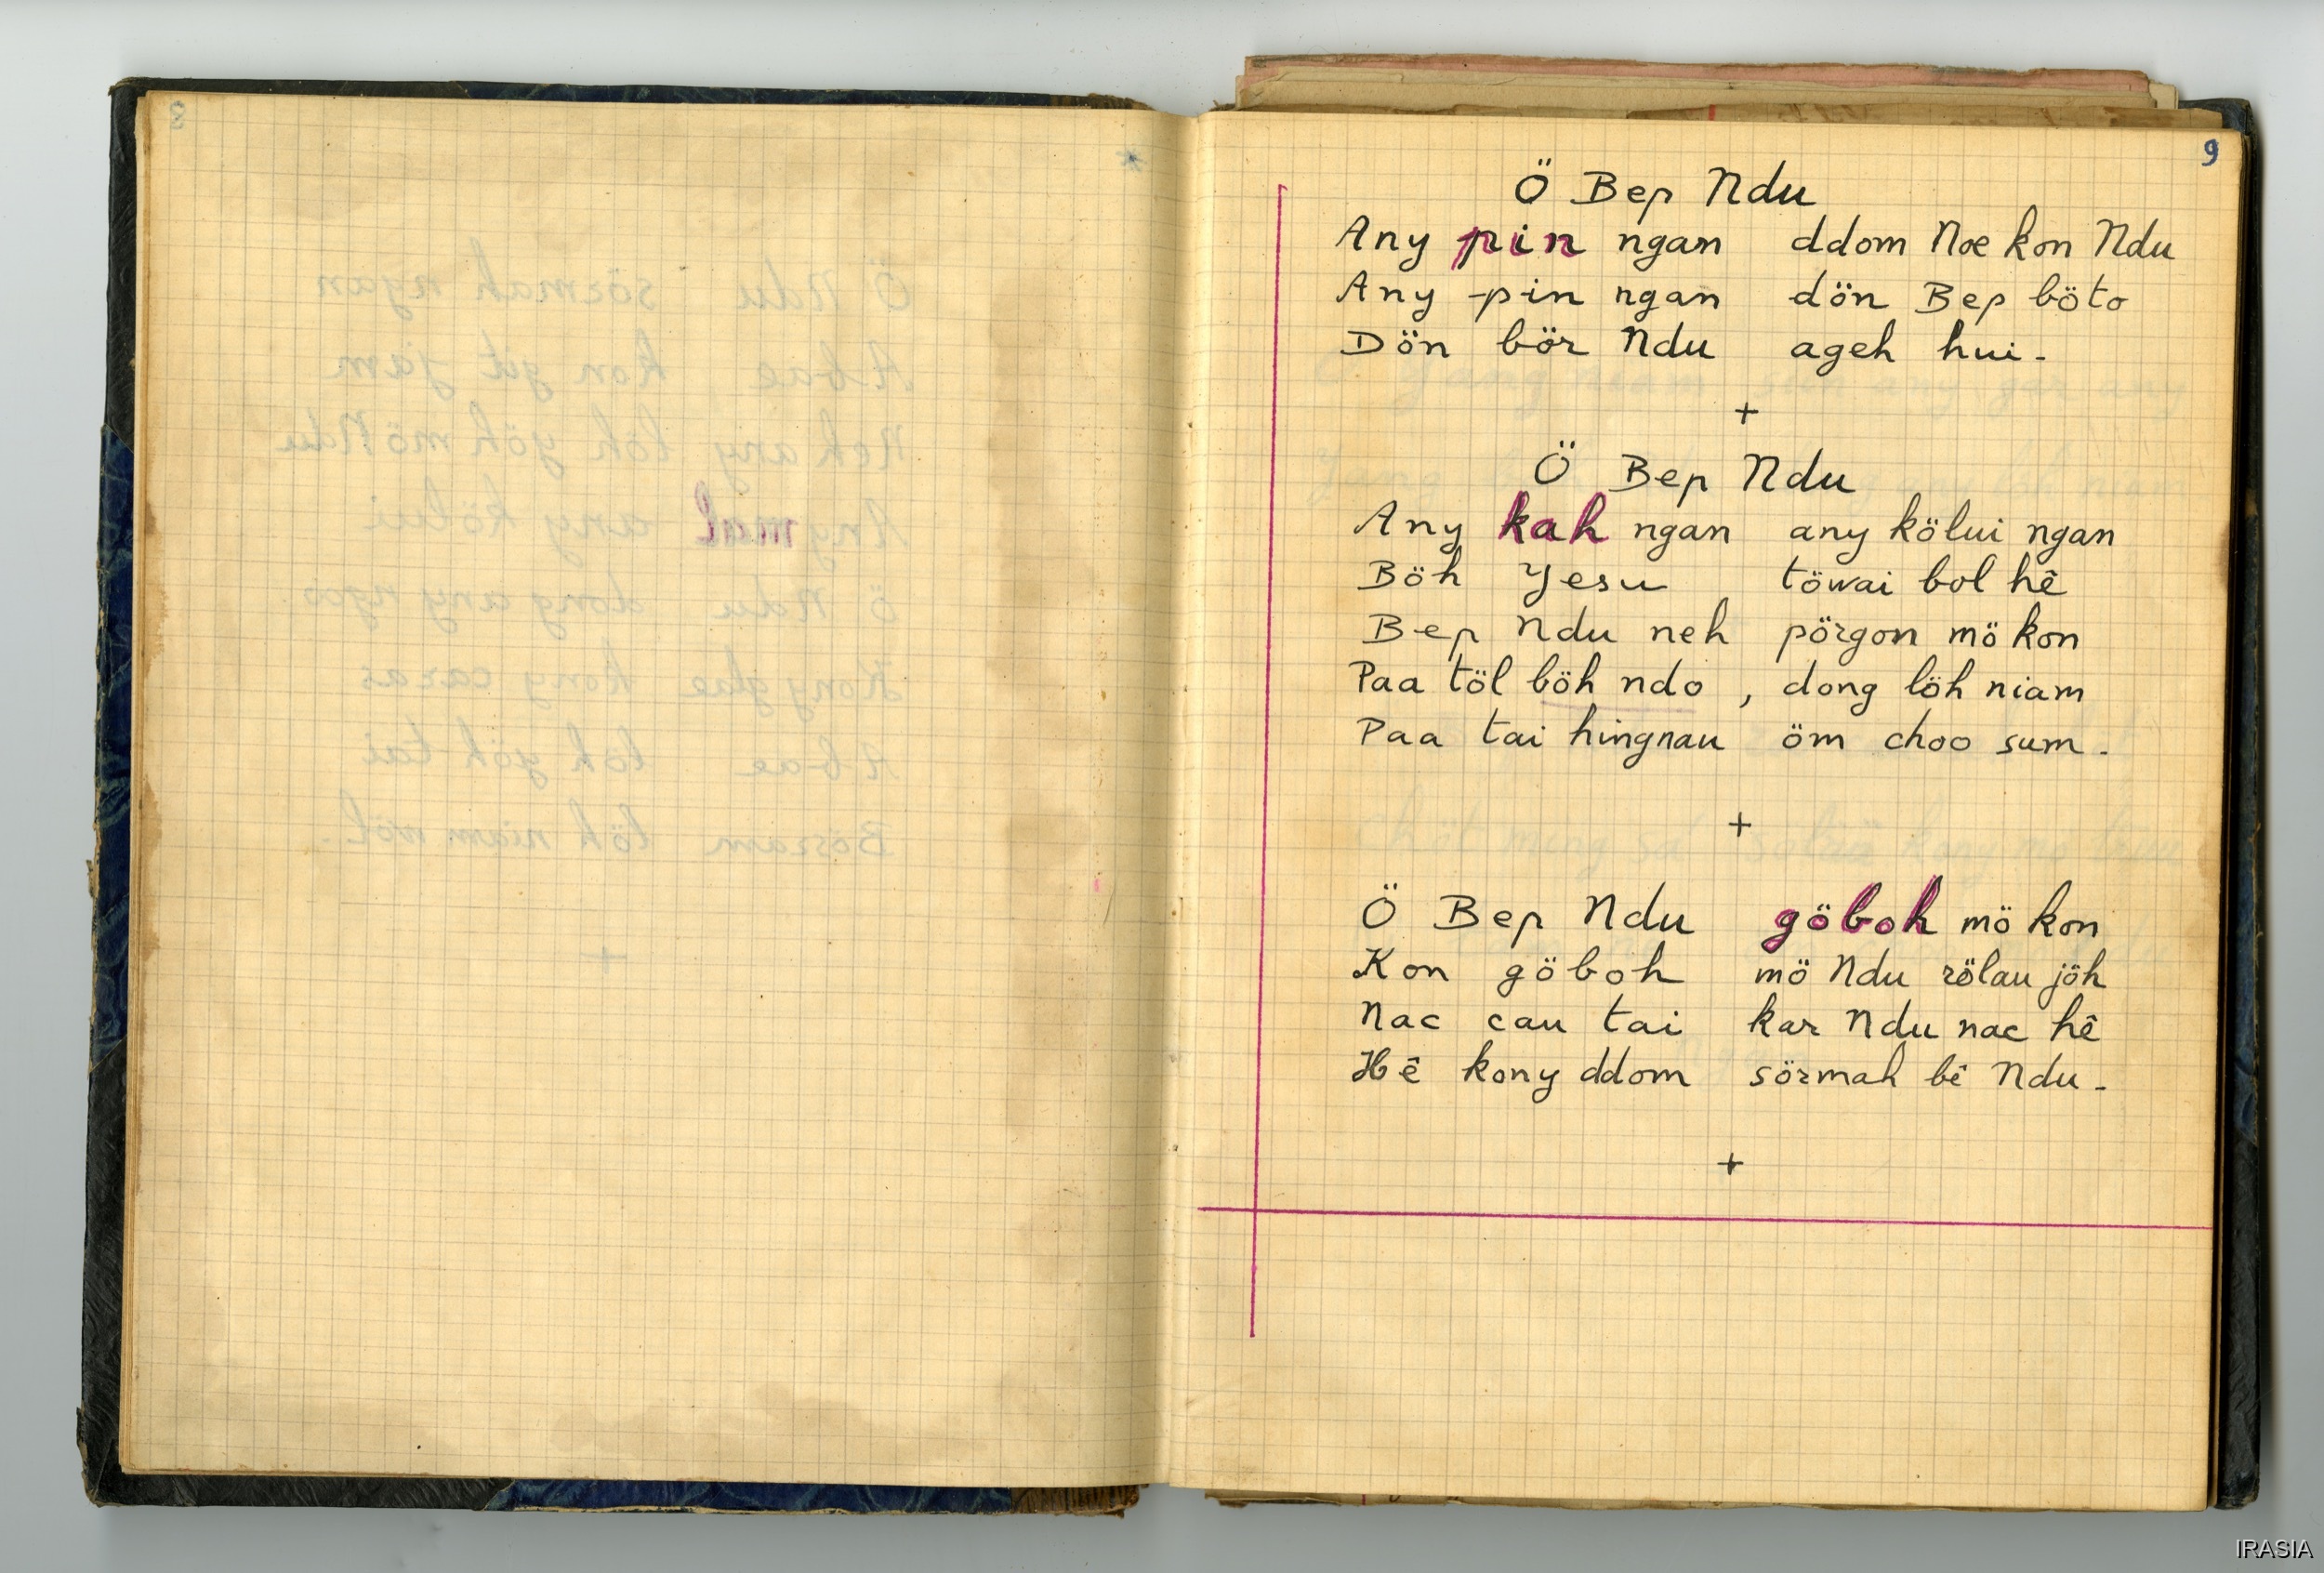 9
Ö Bep Ndu
Any pin ngan ddom Noe kon Ndu
Any pin ngan dön Bep böto
Dön bör Ndu ageh hui.
+
Ö Bep Ndu
Any kah ngan any kölui ngan
Böh Yesu töwai bol hê
Bep Ndu neh pörgon mö kon
Paa töl böh ndo, dong löh niam
Paa tai hingnau öm choo sum.
+
Ö Bep Ndu göboh mö kon
Kon göboh mö Ndu rölau jöh
Nac cau tai kar Ndu nac hê
Hê kony ddom sörmah bê Ndu.
+
IRASIA